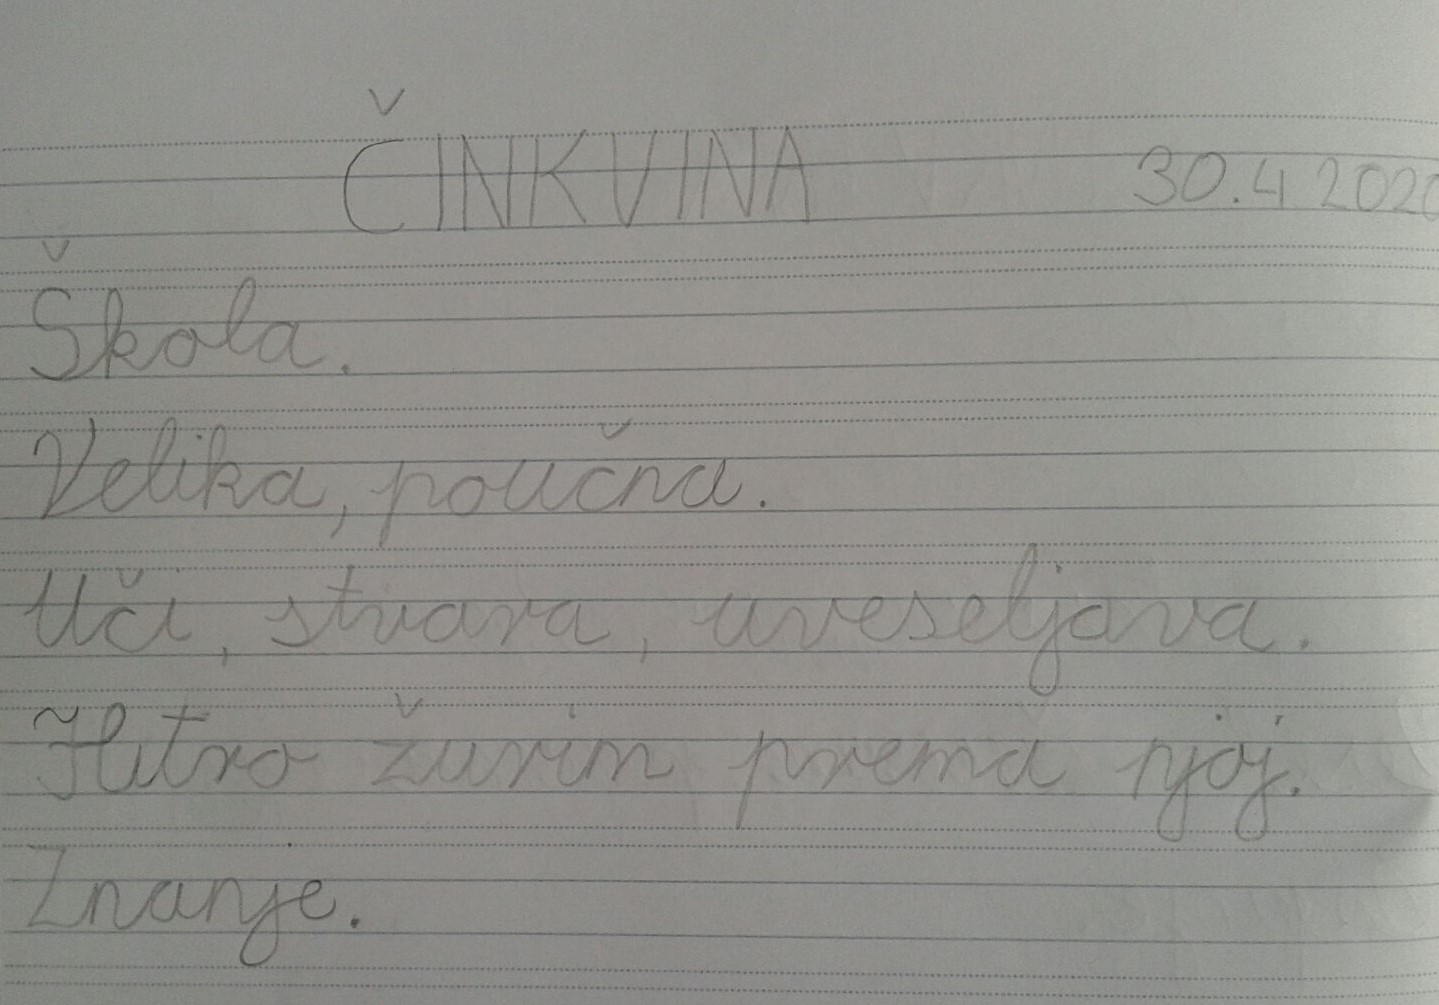 ČINKVINA 30.4 2020
Škola.
Velika, poučna.
Uči, stvara, uveseljava.
Hitro žurim prema njoj.
Znanje.